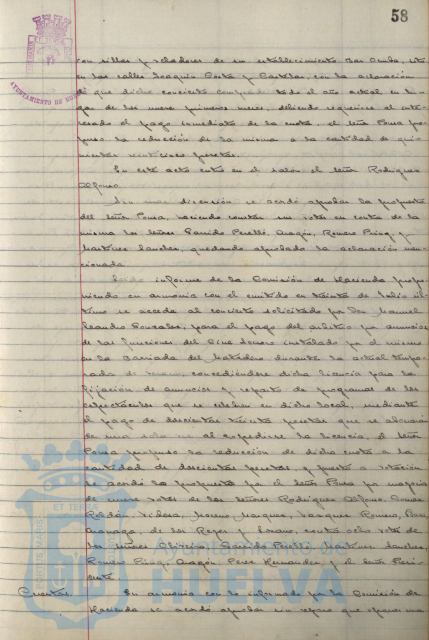 58
AYUNTAMIENTO DE
con sillas y veladores de su establecimiento Bar Cuba, sito
en las calles Joaquín Costa y Castelar, con la aclaración
de que dicho concierto comprende todo el año actual en lu-
gar de los nueve primeros meses, debiendo requerirse al inte-
resado el pago inmediato de la cuota, el señor Poma pro-
puso la reducción de la misma a la cantidad de qui-
nientas veinticinco pesetas.
En este acto entra en el salón el señor Rodríguez
Alfonso.
Sin mas discusión se acordó aprobar la propuesta
del señor Poma, haciendo constar sus votos en contra de la
misma los señores Garrido Perelló, Aragón, Romero Pinay y
Martínez Sanchez, quedando aprobada la aclaración men-
cionada.
Leído informe de la Comisión de Hacienda propo-
niendo en armonía con el emitido en treinta de Julio úl-
timo se acceda al concierto solicitado por Don Manuel
Leandro Gonzalez, para el pago del arbitrio por anuncios
de las funciones del Cine Sonoro instalado por el mismo
en la Barriada del Matadero durante la actual tempo-
rada de verano, concediéndose dicha licencia para la
fijación de anuncios y reparto de programas de los
espectáculos que se celebren en dicho local, mediante
el pago de doscientas treinta pesetas que se abonarán
de una sola vez al expedirse la licencia, el señor
Poma propuso la reducción de dicha cuota a la
cantidad de doscientas pesetas, y puesto a votación
se acordó la propuesta por el señor Poma por mayoría
de nueve votos de los señores Rodríguez Alfonso, Conde
Roldán, Moreno Marquez, Vazquez Romero,
de los Reyes y contra ocho votos de
los señores Garrido Perelló, Martínez Sanchez,
Romero Pinay, Aragón, Perez Hernandez y el señor Presi-
dente.
Cuentas. En armonía con lo informado por la Comisión de
Hacienda se acordó aprobar sin reparo que oponer una
Ayuntamiento de
HUELVA